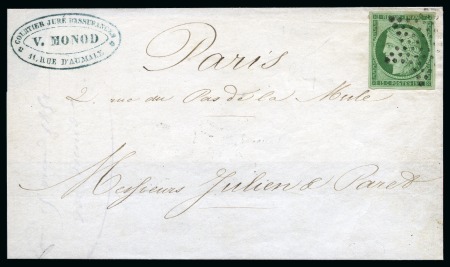 COURTIER JURÉ D'ASSURANCES
V. MONOD
11, RUE D'AUMALE
Paris
2. rue du Pas de la Mule
Messieurs Julien & Paret
15 C. POSTES 15 C.